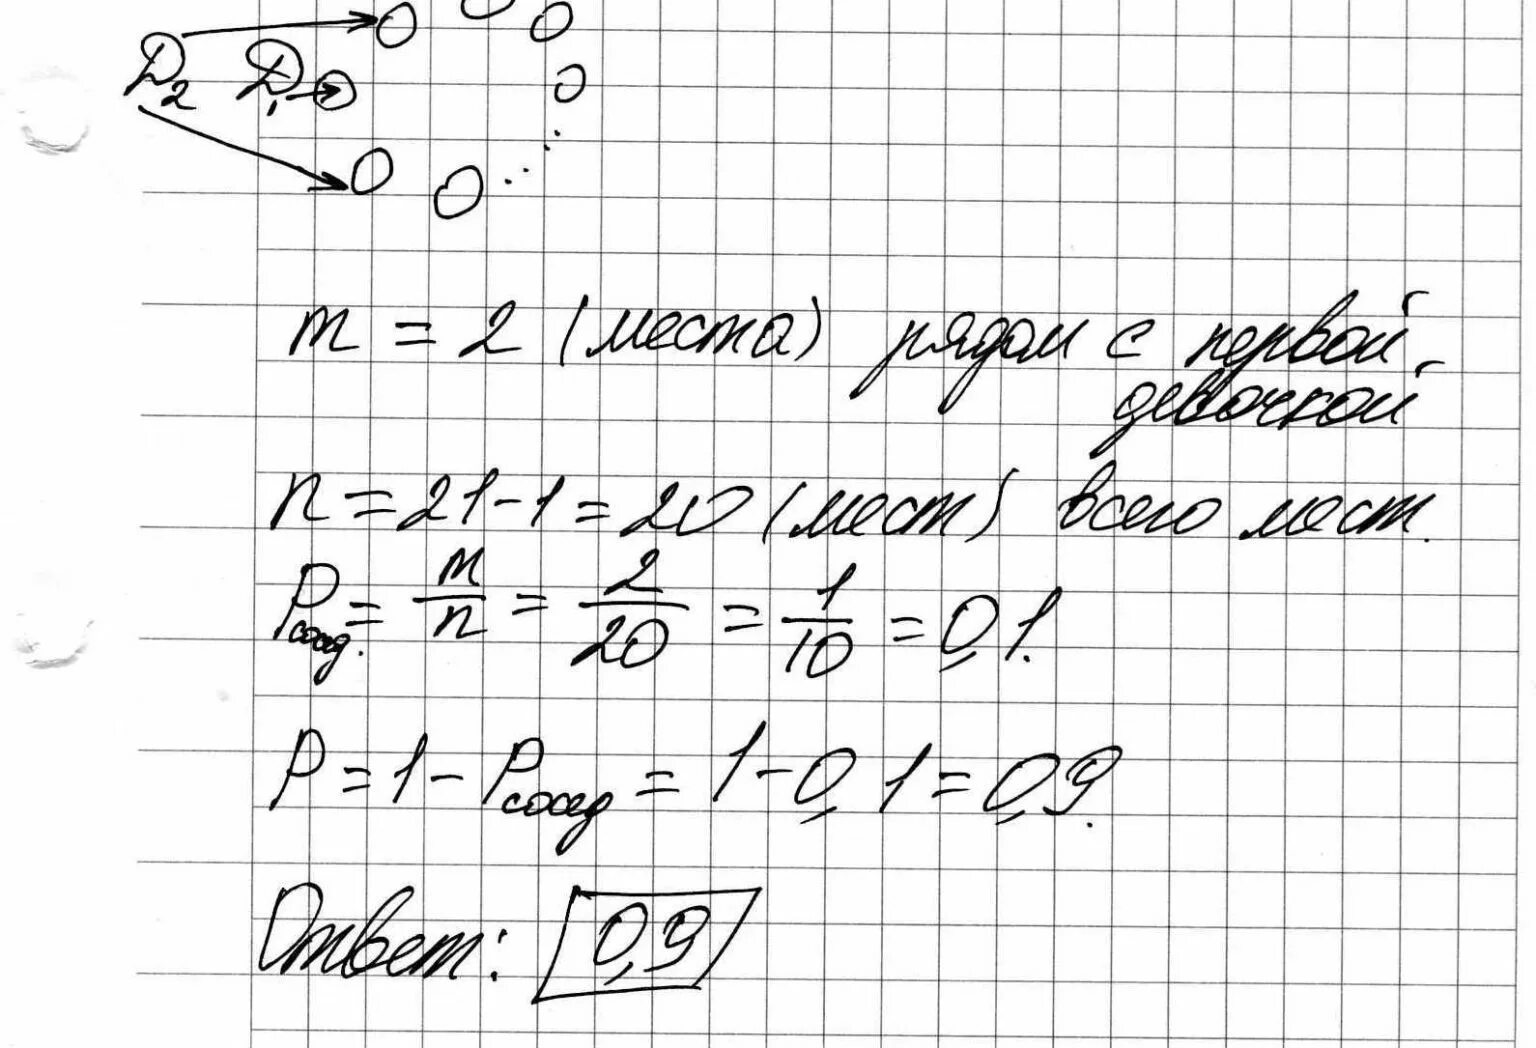 Д₂ Д₁
m = 2 (места) рядом с первой
девочкой
n = 21-1 = 20 (мест) всего мест.
Pсосед. = m/n = 2/20 = 1/10 = 0,1.
P = 1 - Pсосед = 1 - 0,1 = 0,9.
Ответ: 0,9